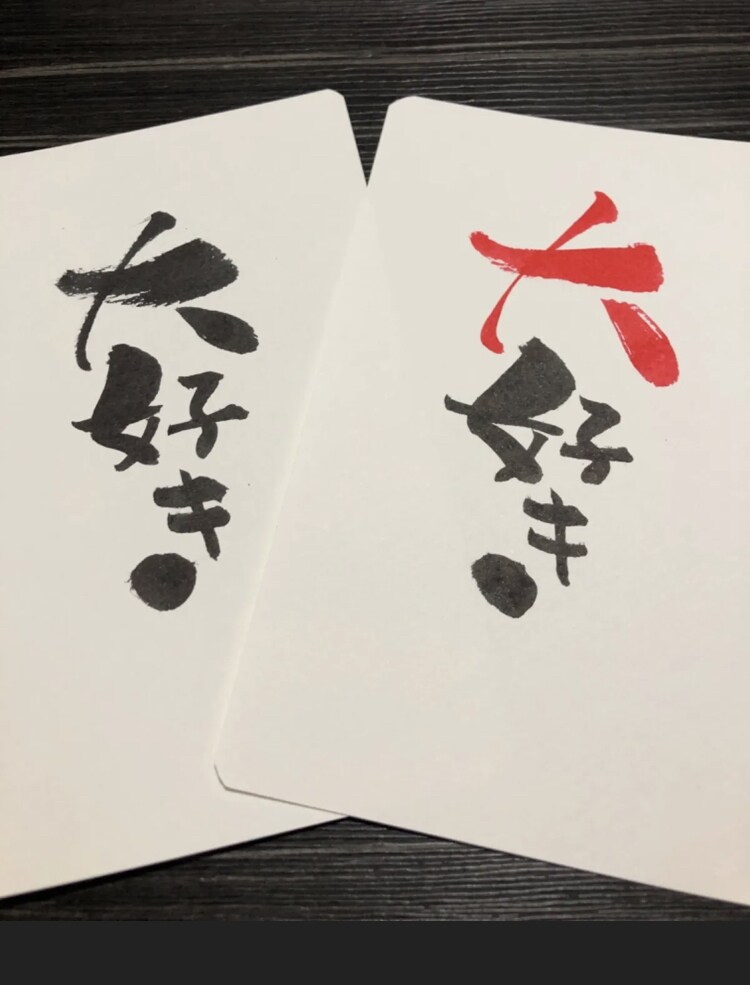 大好き
大好き